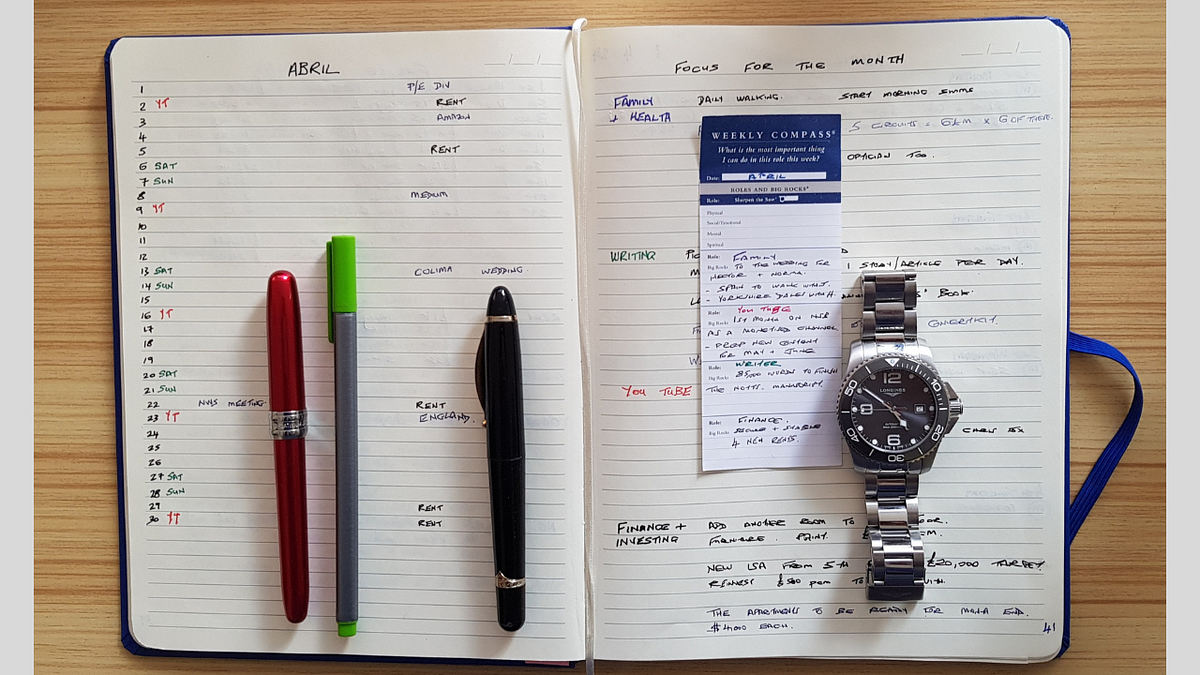 ABRIL
1 P/E DIV
2 YT RENT
3 AMAZON
4
5 RENT
6 SAT
7 SUN
8 MEDIUM
9 YT
10
11
12
13 SAT COLIMA WEDDING.
14 SUN
15
16 YT
17
18
19
20 SAT
21 SUN
22 NVHS MEETING. RENT
23 YT ENGLAND.
24
25
26
27 SAT
28 SUN
29 RENT
30 YT RENT
FOCUS FOR THE MONTH
FAMILY + HEALTH
DAILY WALKING. START MORNING SWIMS
5 CIRCUITS = 6KM X 6 OF THESE.
OPTICIAN TOO.
WEEKLY COMPASS®
What is the most important thing
I can do in this role this week?
Date: APRIL
ROLES AND BIG ROCKS®
Role: Sharpen the Saw®
Physical
Social/Emotional
Mental
Spiritual
Role: FAMILY
Big Rocks TO THE WEDDING FOR
HECTOR + NORMA.
- SPAIN TO WALK WITH J.
- YORKSHIRE DALES WITH H.
Role: YOU TUBE
Big Rocks 1ST MONTH ON
AS A MONETISED CHANNEL
- PREP NEW CONTENT
FOR MAY + JUNE
Role: WRITER
Big Rocks 85,000 WORDS TO FINISH
THE NOTTS. MANUSCRIPT.
Role: FINANCE.
Big Rocks SECURE + STABLE
4 NEW RENTS.
WRITING
1 STORY/ARTICLE PER DAY.
BOOK.
YOU TUBE
LONGINES
AUTOMATIC
FINANCE + INVESTING
ADD ANOTHER ROOM TO
FURNITURE. PAINT.
NEW LSA FROM 5TH £20,000 TARGET.
REINVEST £500 pcm TO WITH.
THE APARTMENTS TO BE READY FOR MONTH END.
$4000 EACH.
41